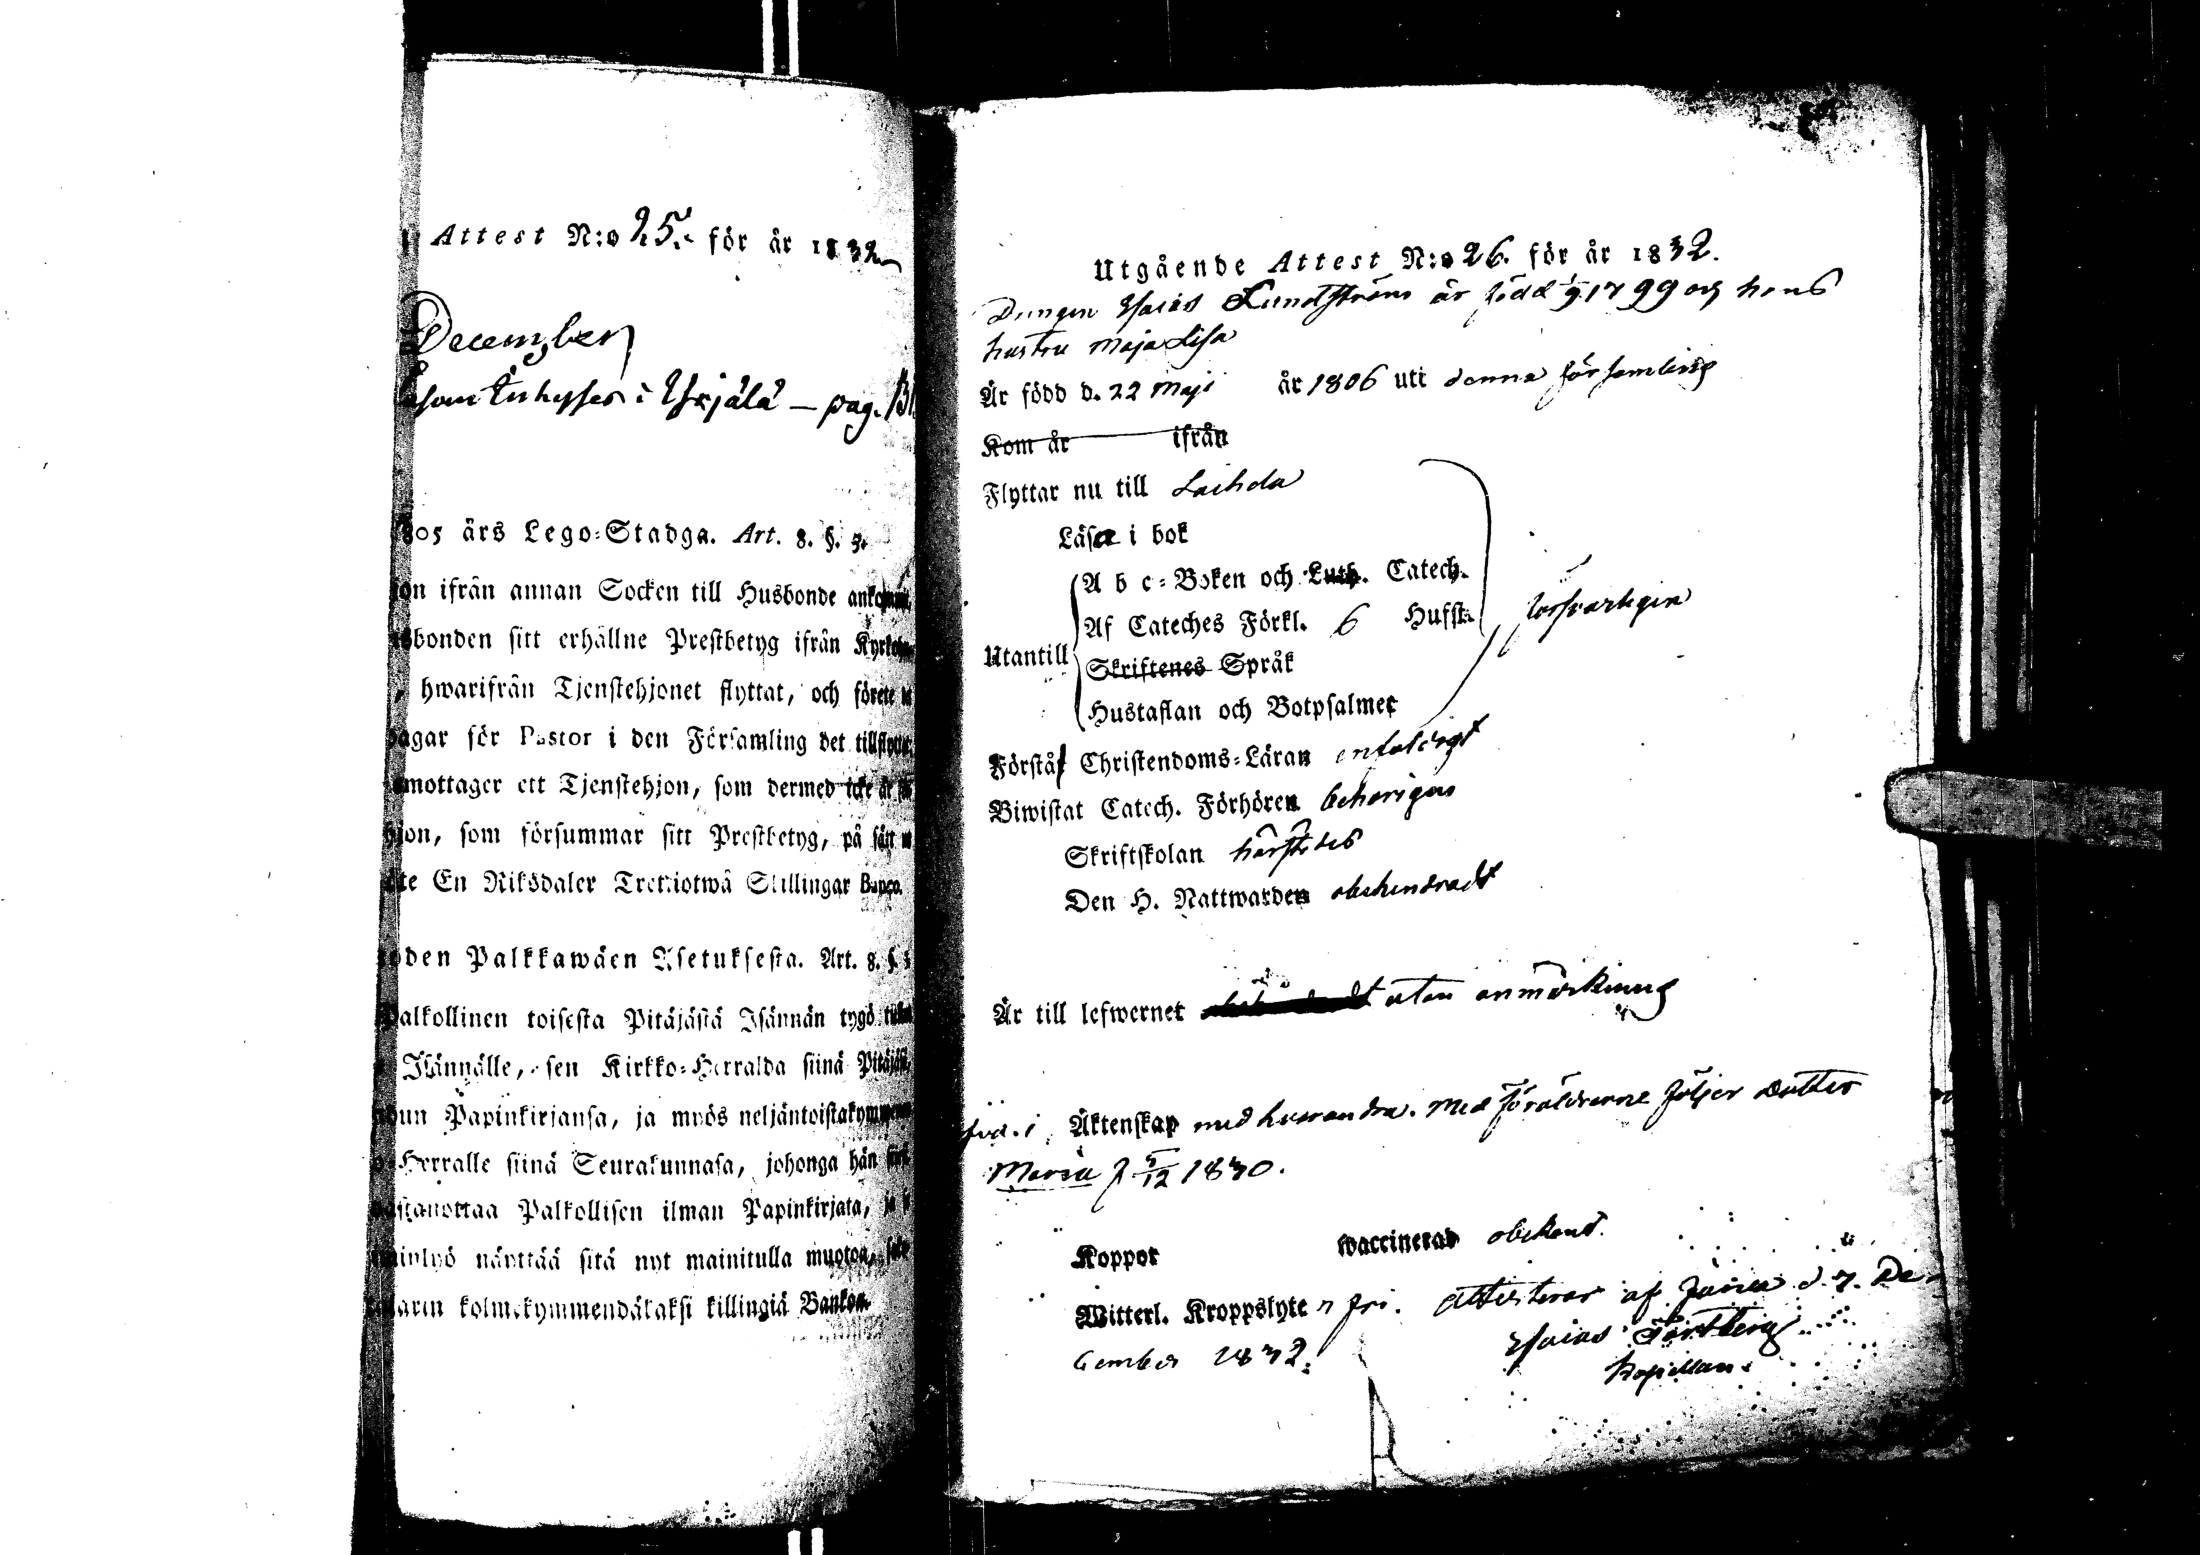 Attest N:o 25. för år 1832
December
som Inhyses i Yrjälä — pag. 131
805 års Lego-Stadga. Art. 8. §. 5.
on ifrån annan Socken till Husbonde
sbonden sitt erhållne Prestbetyg ifrån
, hwarifrån Tjenstehjonet flyttat, och förete
dagar för Pastor i den Församling det
mottager ett Tjenstehjon, som dermed icke är
hjon, som försummar sitt Prestbetyg, på sätt
te En Riksdaler Trettiotwå Skillingar Banco.
oden Palkkawäen Asetuksesta. Art. 8. §.
Palkollinen toisesta Pitäjästä Isännän tygö
Isännälle, sen Kirkko-Herralda siinä Pitäjäsä
Papinkirjansa, ja myös
Herralle siinä Seurakunnasa, johonga hän
wastanottaa Palkollisen ilman Papinkirjata,
näyttää sitä nyt mainitulla muotoa,
kolmekymmendäkaksi killingiä Bankoa.
Utgående Attest N:o 26. för år 1832.
Drengen Esaias Lundström är född 1/9 1799 och hans
hustru Maja Lisa
Är född d. 22 Maji år 1806 uti denna församling
Kom år ifrån
Flyttar nu till Laihela
Läsa i bok
A b c-Boken och Luth. Catech.
Af Cateches Förkl. 6 Husst. försvarligen
Utantill
Skriftenes Språk
Hustaflan och Botpsalmer
Förstår Christendoms-Läran enfaldigt
Biwistat Catech. Förhören behörigen
Skriftskolan härstädes
Den H. Nattwarden obehindradt
Är till lefwernet utan anmärkning
Äktenskap med hvarandra. Med föräldrarne följer dotter
Maria f 5/12 1830.
Koppor waccinerad obekant.
Witterl. Kroppslyte n fri. Attesteras af d. 7. De-
cember 1832.
Esaias
Kapellan.